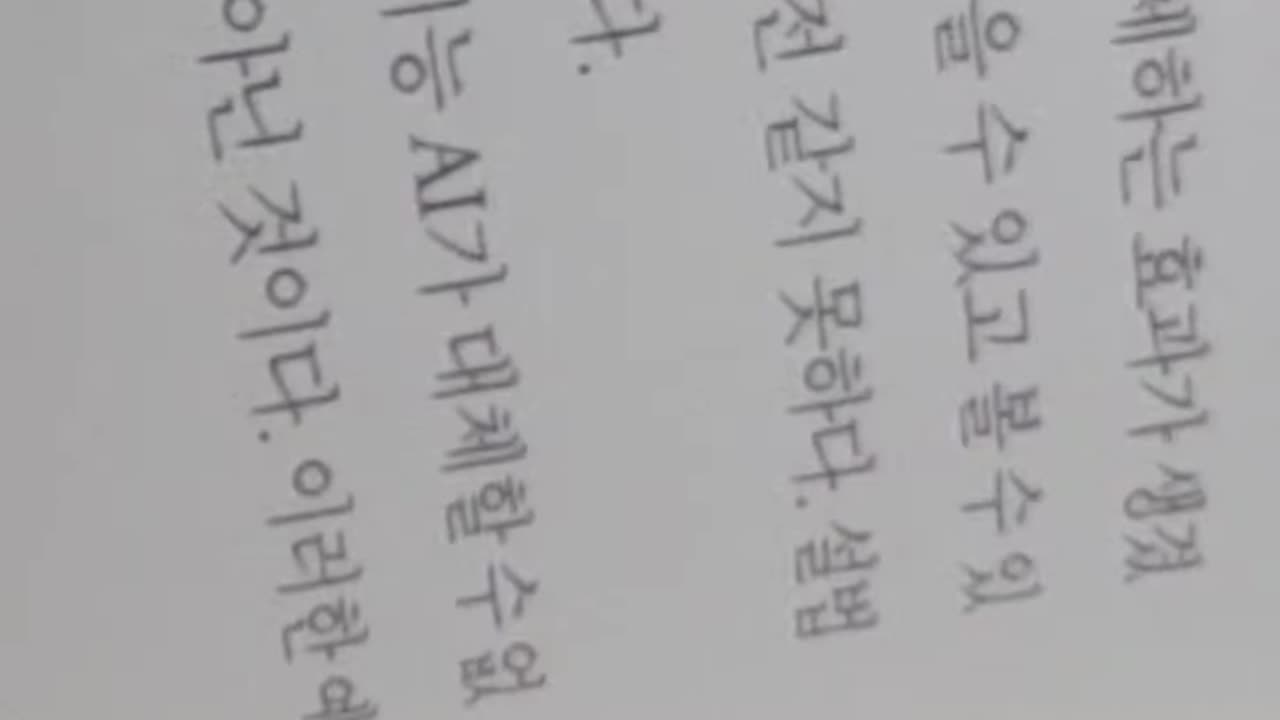 제하는 효과가 생겼
을 수 있고 볼 수 있
전 같지 못하다. 설법
다.
능 AI가 대체할 수 없
아닌 것이다. 이러한 예